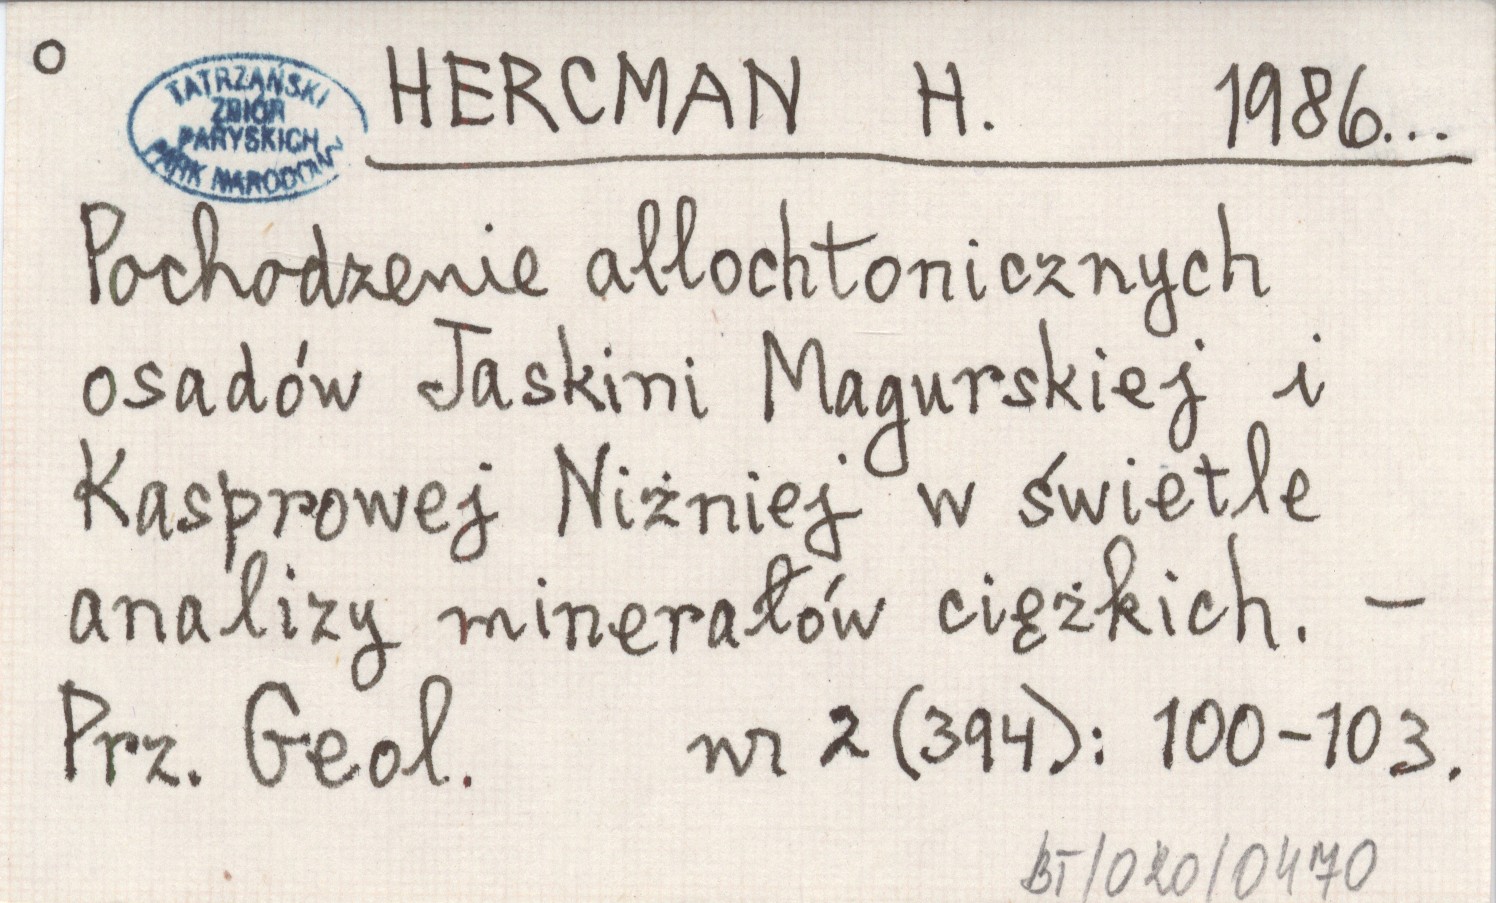 TATRZAŃSKI
ZBIÓR
PARYSKICH
PARK NARODOWY
HERCMAN H. 1986...
Pochodzenie allochtonicznych
osadów Jaskini Magurskiej i
Kasprowej Niżniej w świetle
analizy minerałów ciężkich. –
Prz. Geol. nr 2 (394): 100-103.
BT/020/0470